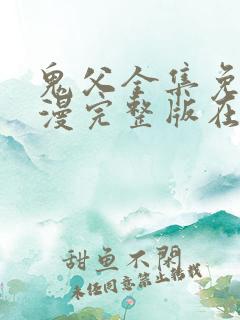 鬼父全集免
漫完整版在
甜鱼不閑
未经同意禁止转载